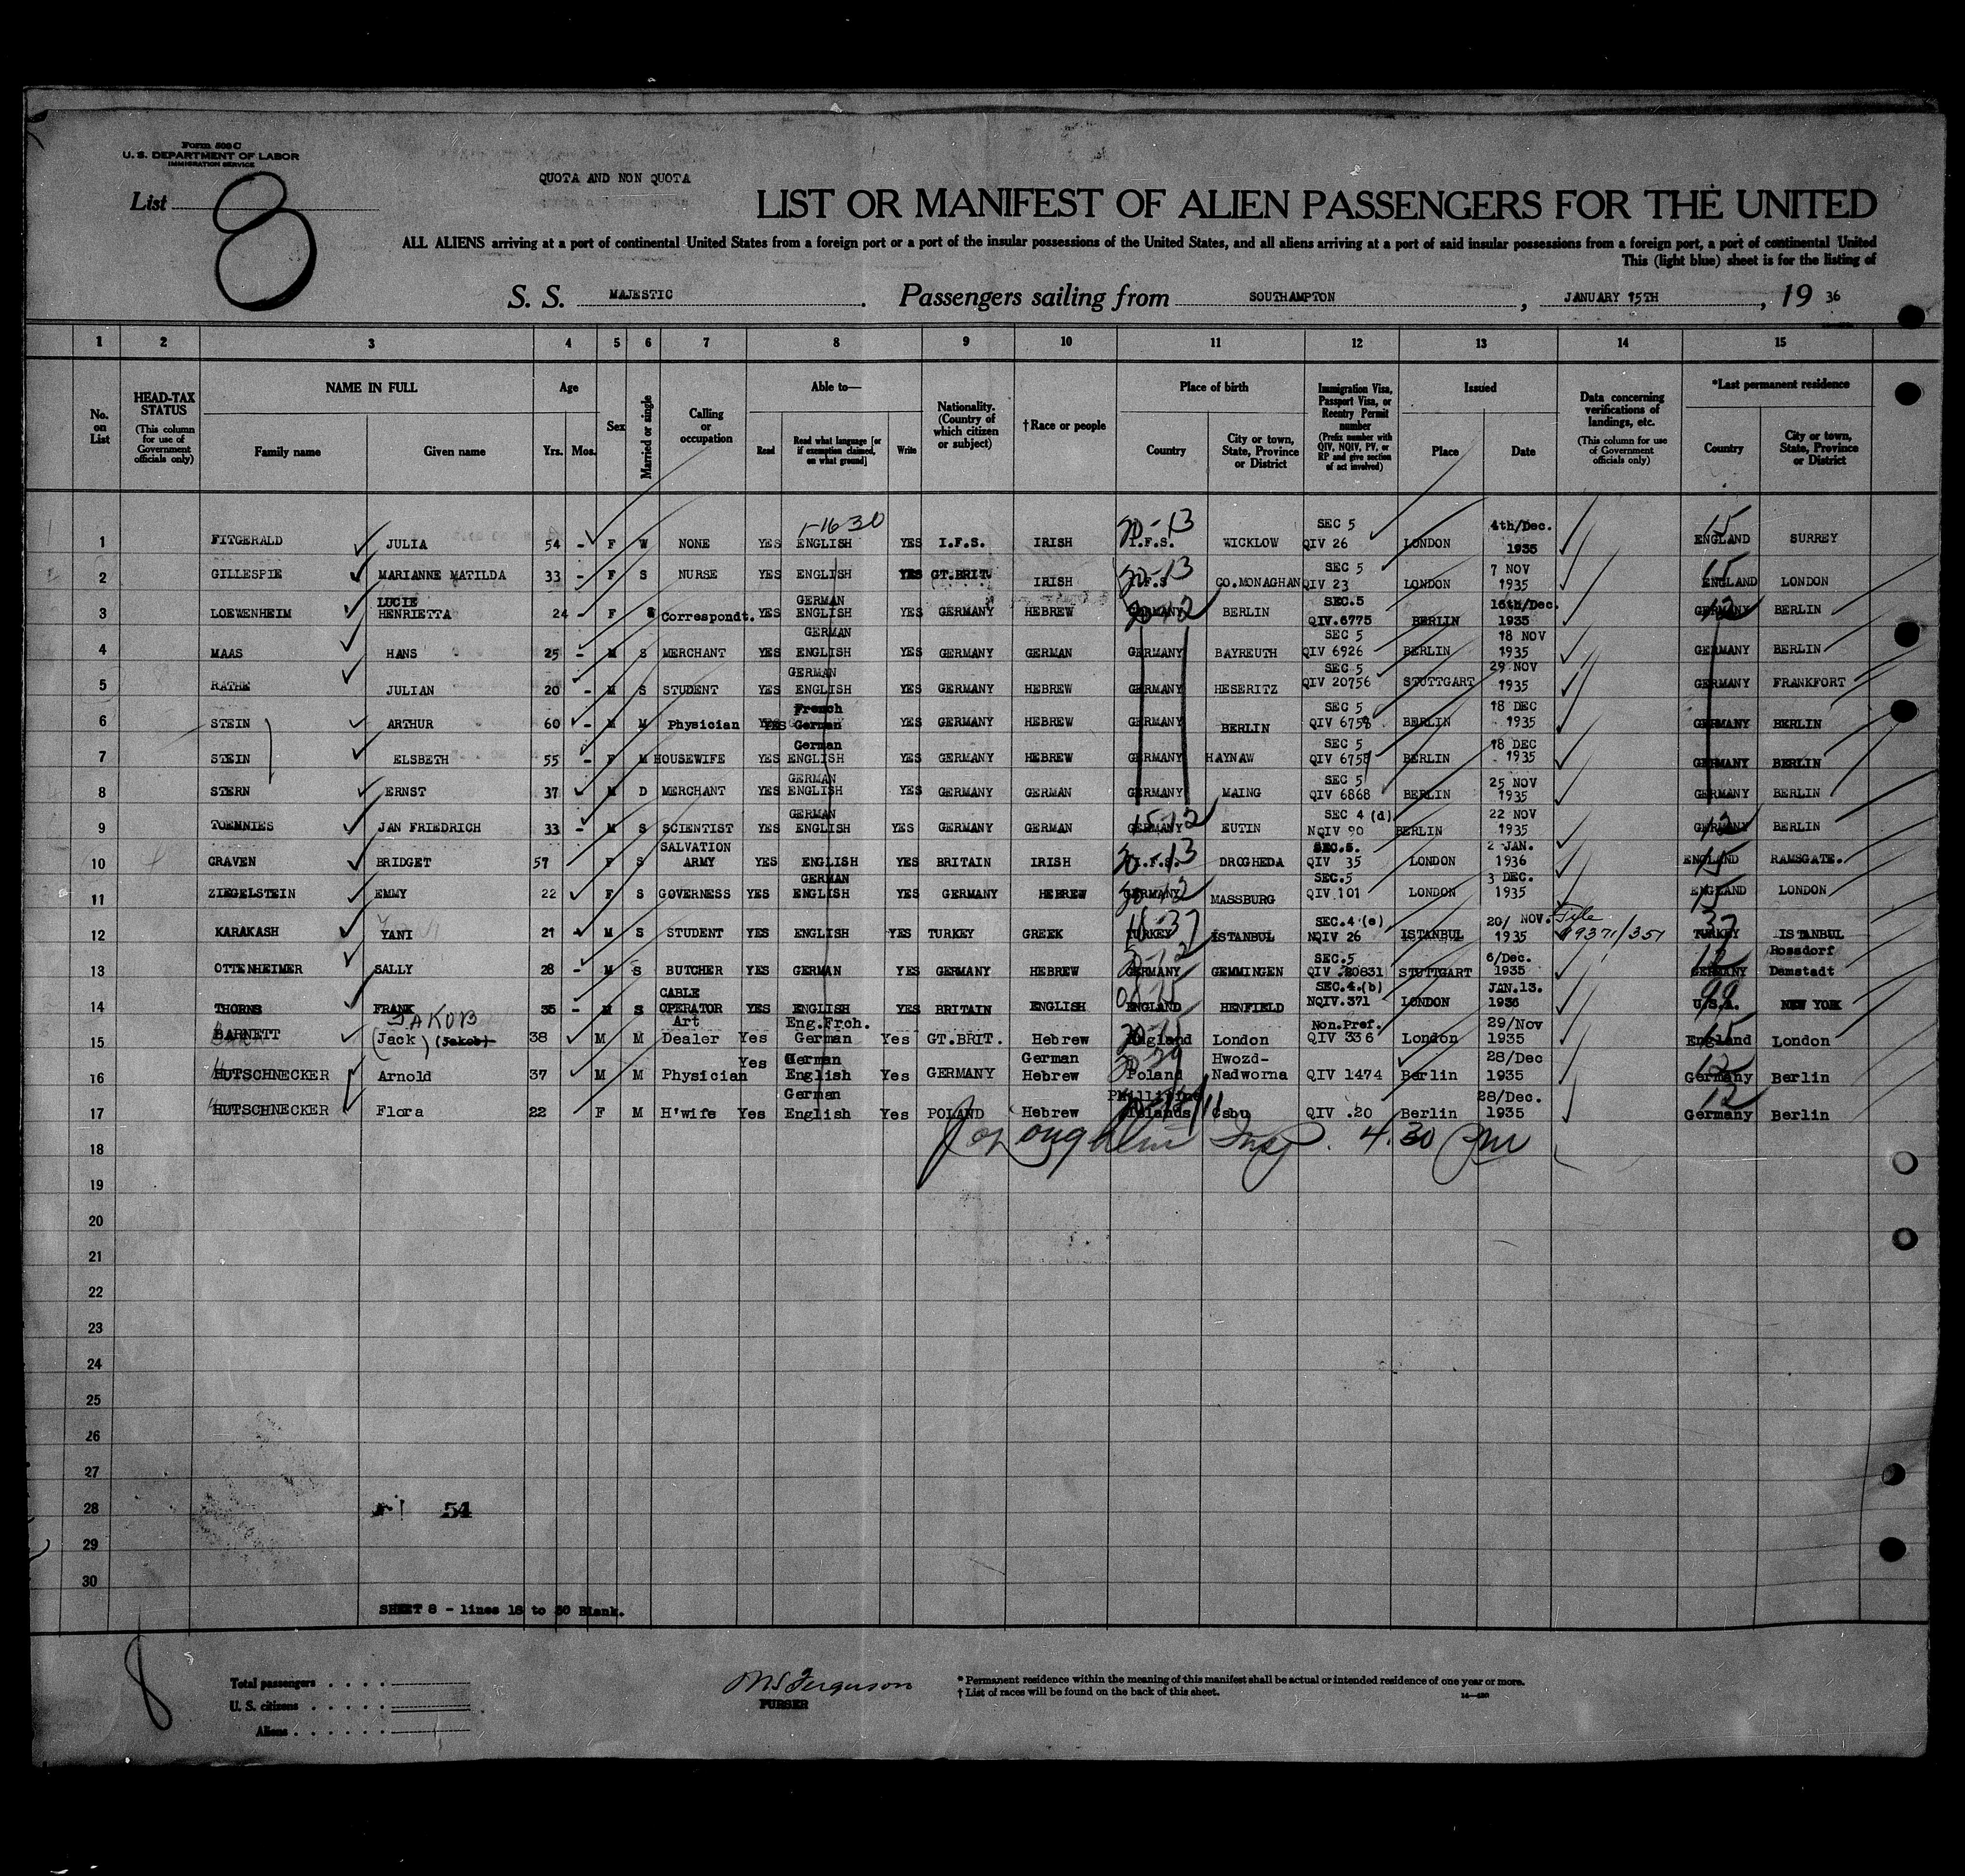 Form 500 C
U. S. DEPARTMENT OF LABOR
IMMIGRATION SERVICE
List 8
QUOTA AND NON QUOTA
LIST OR MANIFEST OF ALIEN PASSENGERS FOR THE UNITED
ALL ALIENS arriving at a port of continental United States from a foreign port or a port of the insular possessions of the United States, and all aliens arriving at a port of said insular possessions from a foreign port, a port of continental United
This (light blue) sheet is for the listing of
S. S. MAJESTIC. Passengers sailing from SOUTHAMPTON, JANUARY 15TH, 19 36
1 2 3 4 5 6 7 8 9 10 11 12 13 14 15
No. on List
HEAD-TAX STATUS (This column for use of Government officials only)
NAME IN FULL Family name Given name
Age Yrs. Mos.
Sex
Married or single
Calling or occupation
Able to— Read Read what language [or if exemption claimed, on what ground] Write
Nationality. (Country of which citizen or subject)
†Race or people
Place of birth Country City or town, State, Province or District
Immigration Visa, Passport Visa, or Reentry Permit number (Prefix number with QIV, NQIV, PV, or RP and give section of act involved)
Issued Place Date
Data concerning verifications of landings, etc. (This column for use of Government officials only)
*Last permanent residence Country City or town, State, Province or District
1-16 30
1 FITGERALD JULIA 54 - F W NONE YES ENGLISH YES I.F.S. IRISH 20-13 I.F.S. WICKLOW SEC 5 QIV 26 LONDON 4th/Dec. 1935 15 ENGLAND SURREY
2 GILLESPIE MARIANNE MATILDA 33 - F S NURSE YES ENGLISH YES GT.BRIT. IRISH 20-13 I.F.S CO.MONAGHAN SEC 5 QIV 23 LONDON 7 NOV 1935 15 ENGLAND LONDON
3 LOEWENHEIM LUCIE HENRIETTA 24 - F S Correspondt. YES GERMAN ENGLISH YES GERMANY HEBREW GERMANY 20-12 BERLIN SEC.5 QIV.6775 BERLIN 16th/Dec. 1935 GERMANY 12 BERLIN
4 MAAS HANS 25 - M S MERCHANT YES GERMAN ENGLISH YES GERMANY GERMAN GERMANY BAYREUTH SEC 5 QIV 6926 BERLIN 18 NOV 1935 GERMANY BERLIN
5 RATHE JULIAN 20 - M S STUDENT YES GERMAN ENGLISH YES GERMANY HEBREW GERMANY HESERITZ SEC 5 QIV 20756 STUTTGART 29 NOV 1935 GERMANY FRANKFORT
6 STEIN ARTHUR 60 - M M Physician YES French German YES GERMANY HEBREW GERMANY BERLIN SEC 5 QIV 6758 BERLIN 18 DEC 1935 GERMANY BERLIN
7 STEIN ELSBETH 55 - F M HOUSEWIFE YES German ENGLISH YES GERMANY HEBREW GERMANY HAYNAW SEC 5 QIV 6758 BERLIN 18 DEC 1935 GERMANY BERLIN
8 STERN ERNST 37 M D MERCHANT YES GERMAN ENGLISH YES GERMANY GERMAN GERMANY MAING SEC 5 QIV 6868 BERLIN 25 NOV 1935 GERMANY BERLIN
9 TOENNIES JAN FRIEDRICH 33 - M S SCIENTIST YES GERMAN ENGLISH YES GERMANY GERMAN 15-12 GERMANY EUTIN SEC 4 (d) NQIV 90 BERLIN 22 NOV 1935 GERMANY 12 BERLIN
10 CRAVEN BRIDGET 57 F S SALVATION ARMY YES ENGLISH YES BRITAIN IRISH 20-13 I.F.S. DROGHEDA SEC.5. QIV 35 LONDON 2 JAN. 1936 ENGLAND 15 RAMSGATE.
11 ZIEGELSTEIN EMMY 22 F S GOVERNESS YES GERMAN ENGLISH YES GERMANY HEBREW GERMANY 20-12 MASSBURG SEC.5 QIV 101 LONDON 3 DEC. 1935 ENGLAND 15 LONDON
12 KARAKASH YANI 21 M S STUDENT YES ENGLISH YES TURKEY GREEK 16-37 TURKEY ISTANBUL SEC.4 (e) NQIV 26 ISTANBUL 20/ NOV. 1935 File 99371/351 37 TURKEY ISTANBUL
13 OTTENHEIMER SALLY 28 - M S BUTCHER YES GERMAN YES GERMANY HEBREW GERMANY GEMMINGEN SEC.5 QIV 20831 STUTTGART 6/Dec. 1935 12 GERMANY Rossdorf Damstadt
14 THORNS FRANK 35 - M S CABLE OPERATOR YES ENGLISH YES BRITAIN ENGLISH ENGLAND HENFIELD SEC.4.(b) NQIV.371 LONDON JAN.13. 1936 99 U.S.A. NEW YORK
15 BARNETT JAKOB (Jack) (Jakob) 38 M M Art Dealer Yes Eng.Frch. German Yes GT.BRIT. Hebrew 20-15 England London Non.Pref. QIV 336 London 29/Nov 1935 15 England London
16 HUTSCHNECKER Arnold 37 M M Physician Yes German English Yes GERMANY German Hebrew 20-29 Poland Hwozd- Nadworna QIV 1474 Berlin 28/Dec 1935 12 Germany Berlin
17 HUTSCHNECKER Flora 22 F M H'wife Yes German English Yes POLAND Hebrew Phillipine Islands Cebu QIV .20 Berlin 28/Dec. 1935 12 Germany Berlin
18 Insp. 4.30 pm
19
20
21
22
23
24
25
26
27
28 54
29
30
SHEET 8 - lines 18 to 30 Blank.
8
Total passengers
U. S. citizens
Aliens
Ferguson
PURSER
* Permanent residence within the meaning of this manifest shall be actual or intended residence of one year or more.
† List of races will be found on the back of this sheet.